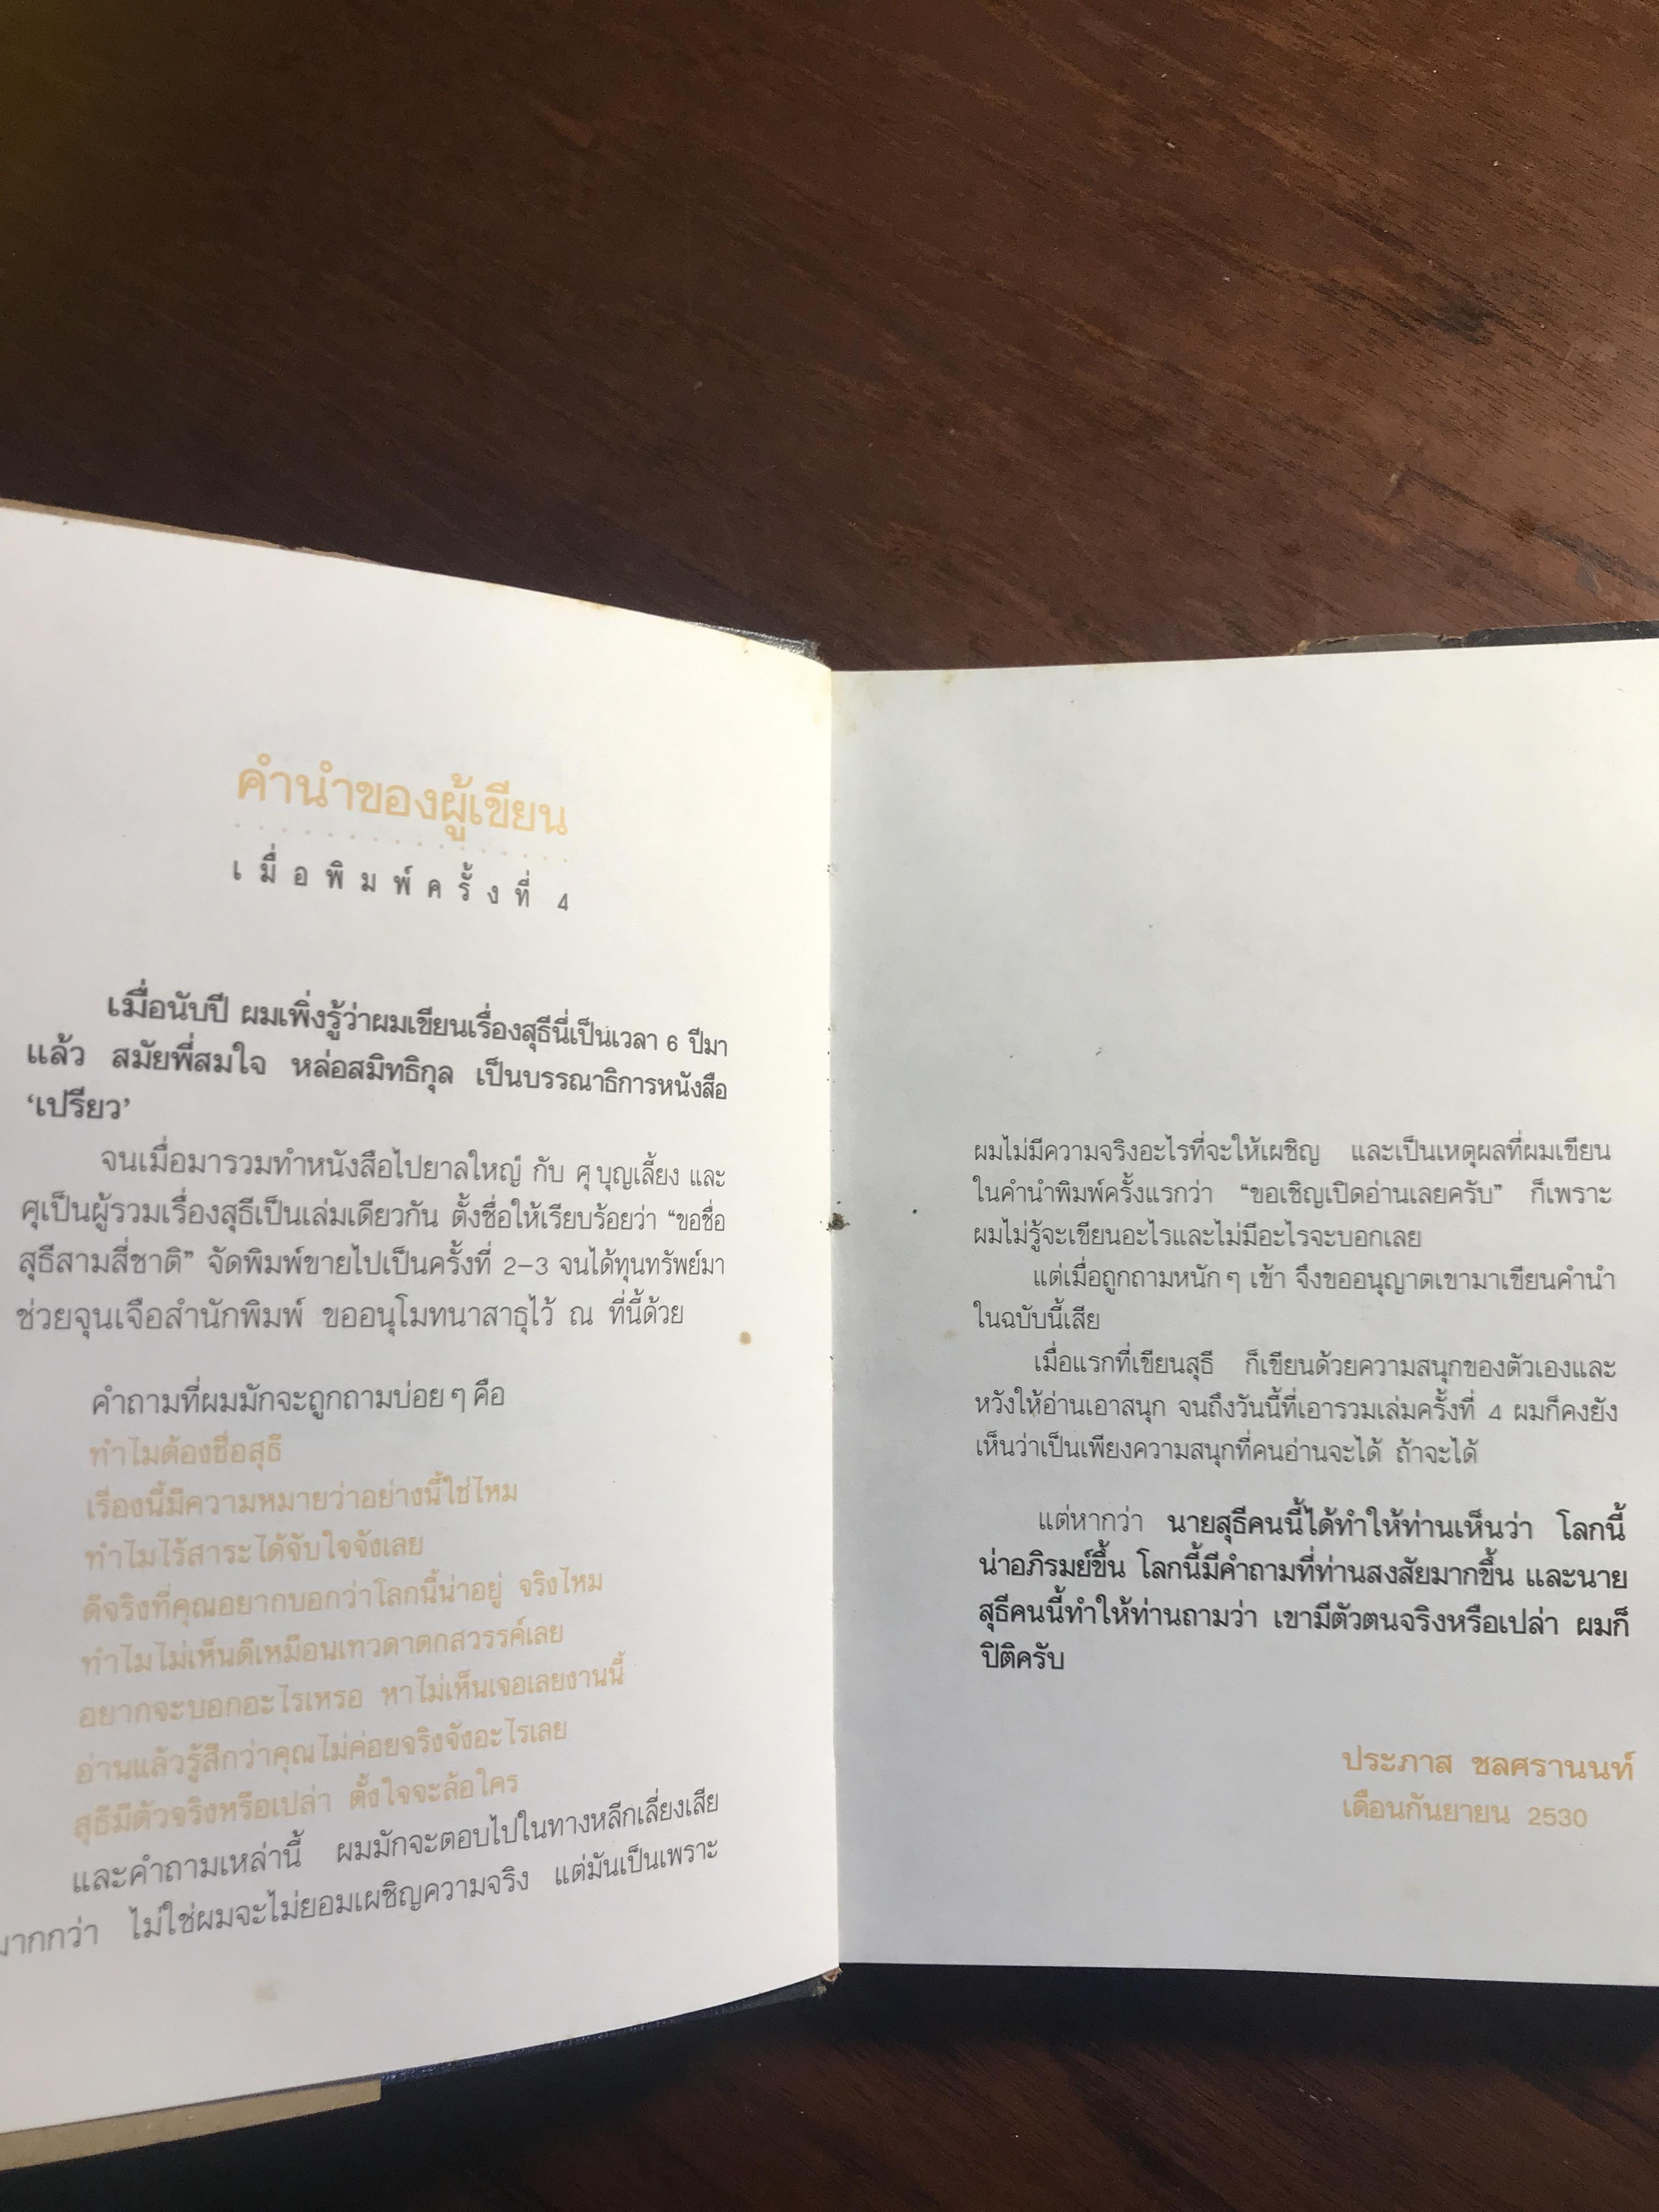 คำนำของผู้เขียน
เมื่อพิมพ์ครั้งที่ 4
เมื่อนับปี ผมเพิ่งรู้ว่าผมเขียนเรื่องสุธีนี่เป็นเวลา 6 ปีมา
แล้ว สมัยพี่สมใจ หล่อสมิทธิกุล เป็นบรรณาธิการหนังสือ
‘เปรียว’
จนเมื่อมารวมทำหนังสือไปยาลใหญ่ กับ ศุ บุญเลี้ยง และ
ศุเป็นผู้รวมเรื่องสุธีเป็นเล่มเดียวกัน ตั้งชื่อให้เรียบร้อยว่า “ขอชื่อ
สุธีสามสี่ชาติ” จัดพิมพ์ขายไปเป็นครั้งที่ 2-3 จนได้ทุนทรัพย์มา
ช่วยจุนเจือสำนักพิมพ์ ขออนุโมทนาสาธุไว้ ณ ที่นี้ด้วย
คำถามที่ผมมักจะถูกถามบ่อย ๆ คือ
ทำไมต้องชื่อสุธี
เรื่องนี้มีความหมายว่าอย่างนี้ใช่ไหม
ทำไมไร้สาระได้จับใจจังเลย
ดีจริงที่คุณอยากบอกว่าโลกนี้น่าอยู่ จริงไหม
ทำไมไม่เห็นดีเหมือนเทวดาตกสวรรค์เลย
อยากจะบอกอะไรเหรอ หาไม่เห็นเจอเลยงานนี้
อ่านแล้วรู้สึกว่าคุณไม่ค่อยจริงจังอะไรเลย
สุธีมีตัวจริงหรือเปล่า ตั้งใจจะล้อใคร
และคำถามเหล่านี้ ผมมักจะตอบไปในทางหลีกเลี่ยงเสีย
มากกว่า ไม่ใช่ผมจะไม่ยอมเผชิญความจริง แต่มันเป็นเพราะ
ผมไม่มีความจริงอะไรที่จะให้เผชิญ และเป็นเหตุผลที่ผมเขียน
ในคำนำพิมพ์ครั้งแรกว่า “ขอเชิญเปิดอ่านเลยครับ” ก็เพราะ
ผมไม่รู้จะเขียนอะไรและไม่มีอะไรจะบอกเลย
แต่เมื่อถูกถามหนัก ๆ เข้า จึงขออนุญาตเขามาเขียนคำนำ
ในฉบับนี้เสีย
เมื่อแรกที่เขียนสุธี ก็เขียนด้วยความสนุกของตัวเองและ
หวังให้อ่านเอาสนุก จนถึงวันนี้ที่เอารวมเล่มครั้งที่ 4 ผมก็คงยัง
เห็นว่าเป็นเพียงความสนุกที่คนอ่านจะได้ ถ้าจะได้
แต่หากว่า นายสุธีคนนี้ได้ทำให้ท่านเห็นว่า โลกนี้
น่าอภิรมย์ขึ้น โลกนี้มีคำถามที่ท่านสงสัยมากขึ้น และนาย
สุธีคนนี้ทำให้ท่านถามว่า เขามีตัวตนจริงหรือเปล่า ผมก็
ปิติครับ
ประภาส ชลศรานนท์
เดือนกันยายน 2530